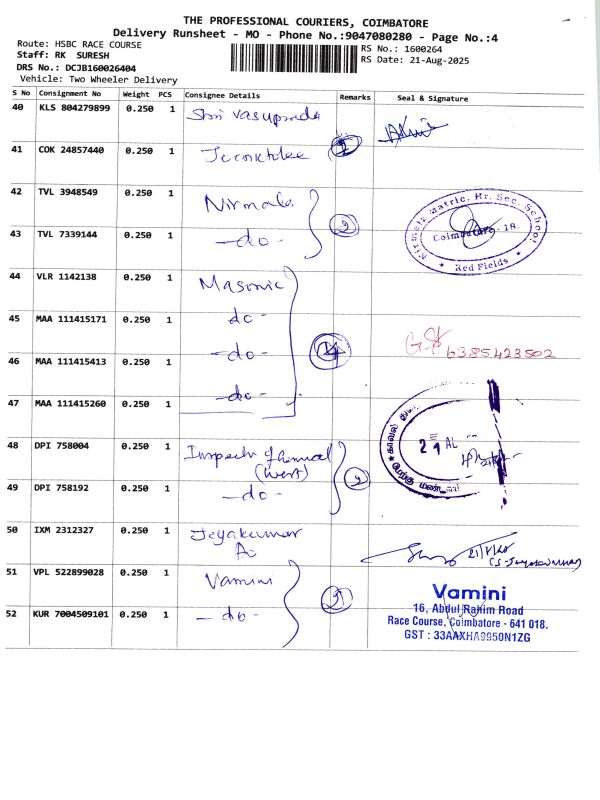 THE PROFESSIONAL COURIERS, COIMBATORE
Delivery Runsheet - MO - Phone No.:9047080280 - Page No.:4
Route: HSBC RACE COURSE
RS No.: 1600264
Staff: RK SURESH
RS Date: 21-Aug-2025
DRS No.: DCJB160026404
Vehicle: Two Wheeler Delivery
S No Consignment No Weight PCS Consignee Details Remarks Seal & Signature
40 KLS 804279899 0.250 1 Shri Vasuprada
41 COK 24857440 0.250 1
42 TVL 3948549 0.250 1 Nirmala
43 TVL 7339144 0.250 1 -do-
Nirmala Matric. Hr. Sec. School
Coimbatore - 18.
★ Red Fields ★
44 VLR 1142138 0.250 1 Masonic
45 MAA 111415171 0.250 1 -do-
46 MAA 111415413 0.250 1 -do- 6385423502
47 MAA 111415260 0.250 1 -do-
காவல்
மேற்கு
48 DPI 758004 0.250 1
(West)
49 DPI 758192 0.250 1 -do-
50 IXM 2312327 0.250 1 Jeyakumar
51 VPL 522899028 0.250 1 Vamini
52 KUR 7004509101 0.250 1 -do-
Vamini
16, Abdul Rahim Road
Race Course, Coimbatore - 641 018.
GST : 33AAXHA9950N1ZG